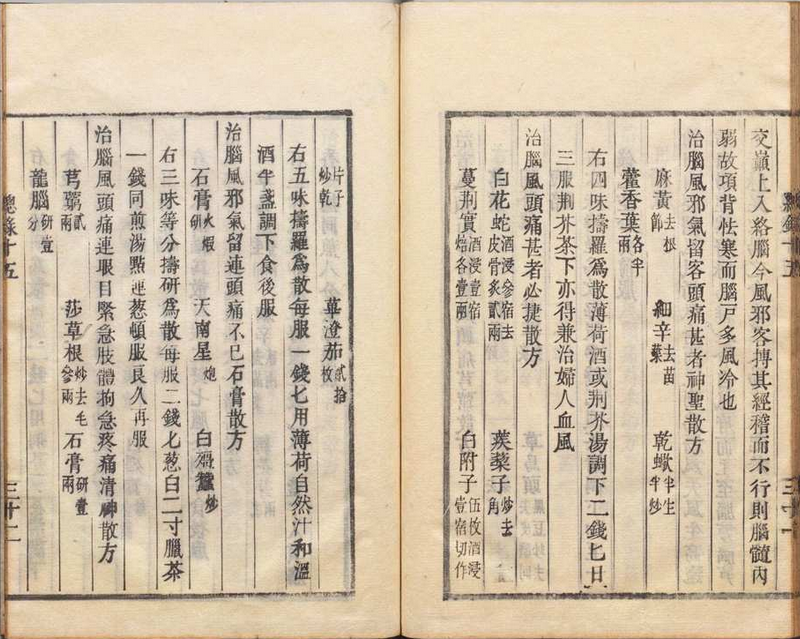 交巔上入絡腦今風邪客摶其經稽而不行則腦髓內
弱故項背怯寒而腦戶多風冷也
治腦風邪氣留客頭痛甚者神聖散方
麻黃去根節 細辛去苗葉 乾蠍半生半炒
藿香葉各半兩
右四味擣羅爲散薄荷酒或荆芥湯調下二錢匕日
三服荆芥茶下亦得兼治婦人血風
治腦風頭痛甚者必捷散方
白花蛇酒浸參宿去皮骨炙貳兩 蒺蔾子炒去角
蔓荆實酒浸壹宿焙各壹兩 白附子伍枚酒浸壹宿切作
片子炒乾 蓽澄茄貳拾枚
右五味擣羅爲散每服一錢匕用薄荷自然汁和溫
酒半盞調下食後服
治腦風邪氣留連頭痛不已石膏散方
石膏火煆研 天南星炮 白殭蠶炒
右三味等分擣研爲散每服二錢匕葱白二寸臘茶
一錢同煎湯點連葱頓服良久再服
治腦風頭痛連眼目緊急肢體拘急疼痛清神散方
芎藭貳兩 莎草根炒去毛參兩 石膏研壹兩
龍腦研壹分
總錄十五 三十二